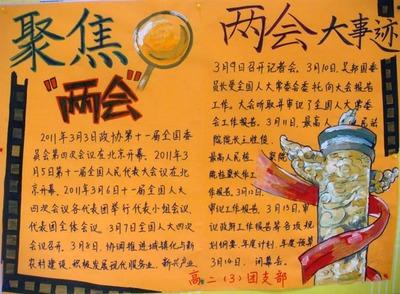 聚焦
"两会"
2011年3月3日政协第十一届全国委
员会第四次会议在北京开幕。2011年3
月5日第十一届人民代表大会在北京
开幕。2011年3月6日十一届全国人大
四次会议各代表团举行代表小组会议,
代表团全体会议。3月7日全国人大四
次会议召开。3月8日,协调推进城镇化与新
农村建设。积极发展现代服务业、新兴产业
两会大事迹
3月9日召开记者会。3月10日,吴邦国委
员长受全国人大常委会委托向大会报告
工作。大会听取并审议了全国人大常委
会工作报告。3月11日,最高人民法
院院长王胜俊、
最高人民检
工作报告。3月12日,
审议工作报告。3月13日,审
议政府工作报告等各项
规划纲要、年度计划、年度预算
3月14日,闭幕会。
高二(3)团支部